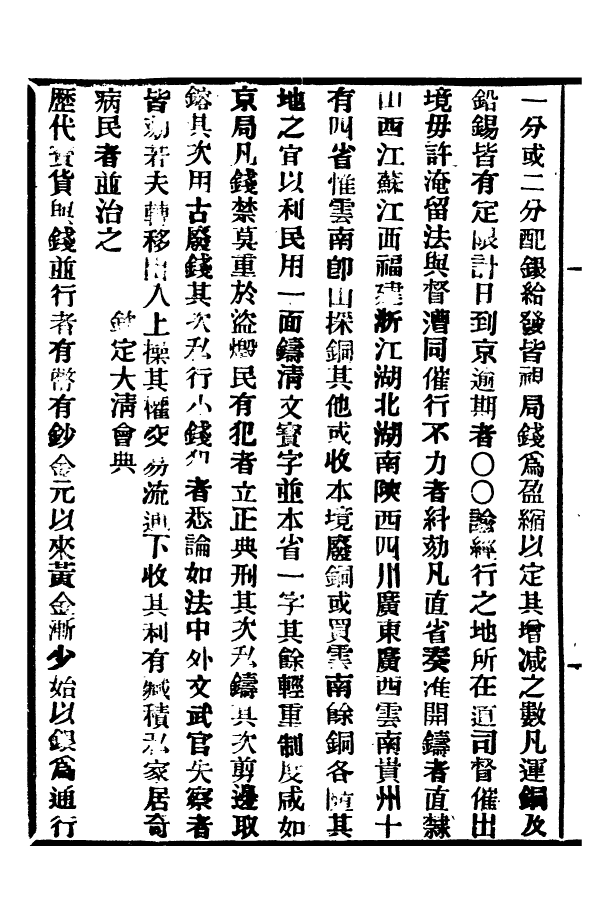 一分或二分配銀給發皆視局錢爲盈縮以定其增减之數凡運銅及
鉛錫皆有定限計日到京逾期者〇〇論經行之地所在道司督催出
境毋許淹留法與督漕同催行不力者糾劾凡直省奏准開鑄者直隸
山西江蘇江西福建浙江湖北湖南陝西四川廣東廣西雲南貴州十
有四省惟雲南卽山採銅其他或收本境廢銅或買雲南餘銅各隨其
地之宜以利民用一面鑄清文寳字並本省一字其餘輕重制度咸如
京局凡錢禁莫重於盜燬民有犯者立正典刑其次私鑄其次剪邊取
鎔其次用古廢錢其次私行小錢犯者悉論如法中外文武官失察者
皆劾若夫轉移出入上操其權交易流通下收其利有緘積私家居奇
病民者並治之 欽定大淸會典
歷代寳貨與錢並行者有幣有鈔金元以來黃金漸少始以銀爲通行